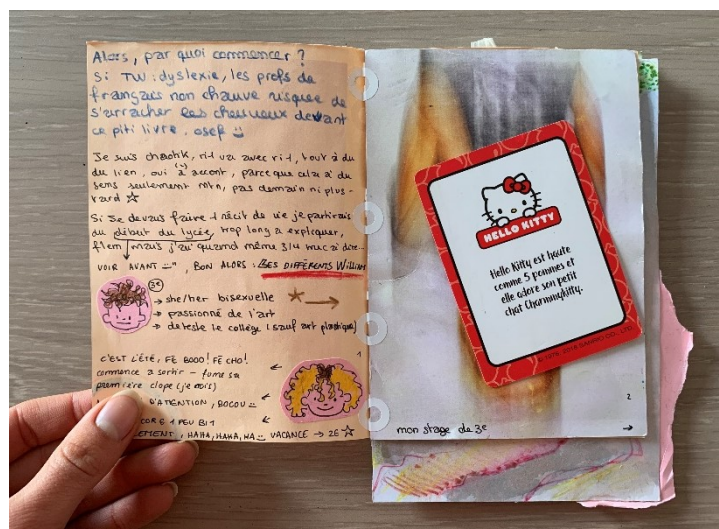 Alors, par quoi commencer ?
Si TW : dyslexie, les profs de
français non chauve risquee de
s'arracher les cheuveux devant
ce piti livre. osef
Je suis chaotik, rit va avec rit, tout à du
du lien, oui à accent, parceque cela a du
sens seulement mtn, pas demain ni plus-
tard ☆
Si je devais faire 1 récit de vie je partirais
du début du lycée, trop long a expliquer,
flem mais j'ai quand même 3/4 truc a dire...
VOIR AVANT , BON ALORS : LES DIFFÉRENTS William
3e
→ she/her bisexuelle
→ passionné de l'art
→ deteste le collège (sauf art plastique)
C'EST L'ÉTÉ, FÉ BOOO! FÉ CHO!
commence a sortir - fume sa
première clope (je crois)
D'ATENTION, BOCOU
1 PEU BIT
HAHA, HAHA, HA VACANCE → 2E ☆
1
HELLO KITTY
Hello Kitty est haute
comme 5 pommes et
elle adore son petit
chat Charmmykitty.
© 1976, 2016 SANRIO CO., LTD.
2
mon stage de 3e →